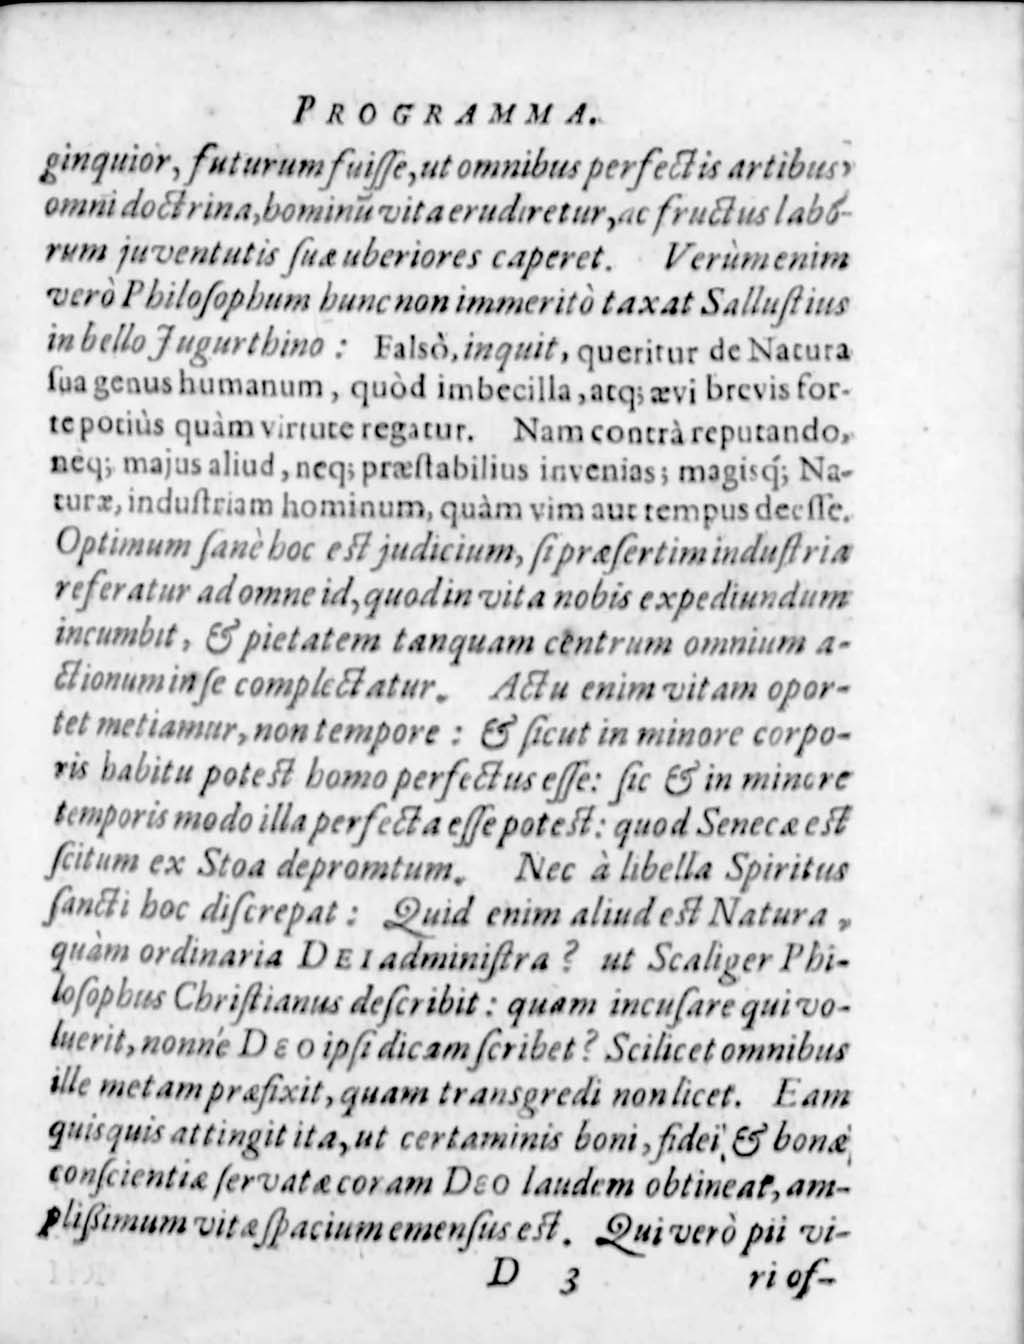 PROGRAMMA.
ginquior, futurum fuiſſe, ut omnibus perfectis artibus,
omni doctrina, hominū vita erudiretur, ac fructus labo-
rum juventutis ſuæ uberiores caperet. Verùm enim
verò Philoſophum hunc non immeritò taxat Salluſtius
in bello Jugurthino: Falsò, inquit, queritur de Natura
ſua genus humanum, quòd imbecilla, atq; ævi brevis for-
te potiùs quàm virtute regatur. Nam contrà reputando,
neq; majus aliud, neq; præſtabilius invenias; magisq́; Na-
turæ, induſtriam hominum, quàm vim aut tempus deeſſe.
Optimum ſanè hoc est judicium, ſi præſertim induſtria
referatur ad omne id, quod in vita nobis expediundum
incumbit, & pietatem tanquam centrum omnium a-
ctionum in ſe complectatur. Actu enim vitam opor-
tet metiamur, non tempore: & ſicut in minore corpo-
ris habitu potest homo perfectus eſſe: ſic & in minore
temporis modo illa perfecta eſſe potest: quod Senecæ est
ſcitum ex Stoa depromtum. Nec à libella Spiritus
ſancti hoc diſcrepat: Quid enim aliud est Natura,
quàm ordinaria DEI adminiſtra? ut Scaliger Phi-
loſophus Chriſtianus deſcribit: quam incuſare qui vo-
luerit, nonné DEO ipſi dicam ſcribet? Scilicet omnibus
ille metam præfixit, quam transgredi non licet. Eam
quisquis attingit ita, ut certaminis boni, fidei, & bonæ
conſcientiæ ſervatæ coram DEO laudem obtineat, am-
pliſſimum vitæ ſpacium emenſus est. Qui verò pii vi-
D 3 ri of-